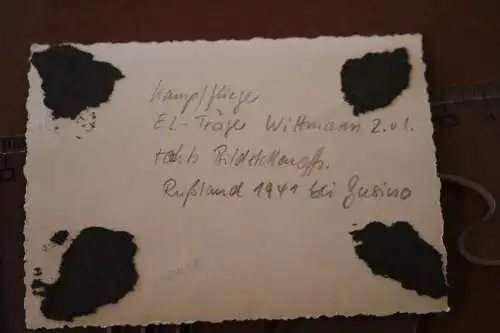 Kampfflieger
EL-Träger Wittmann 2.v.l.
rechts Bildstellenoffz.
Rußland 1941 bei Gusino